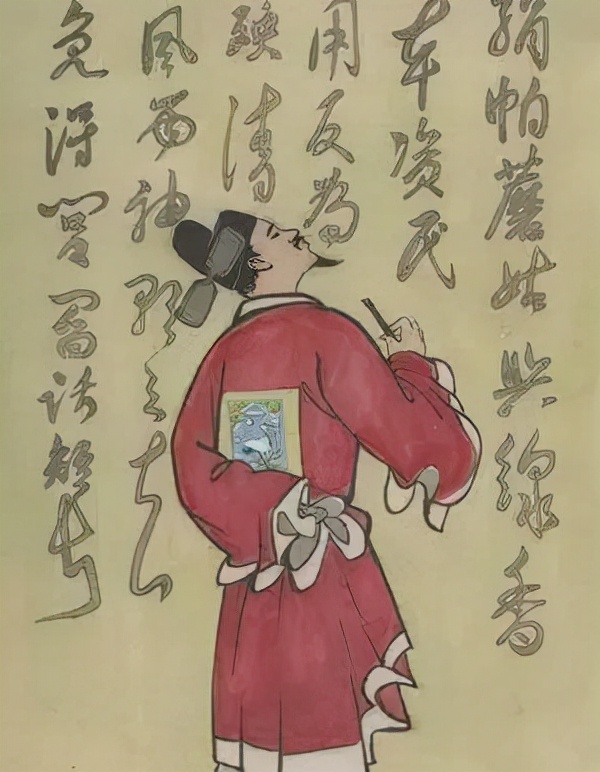 絹帕蘑姑與線香
本資民
用反為
殃清
風兩袖朝天去
免得閭閻話短長